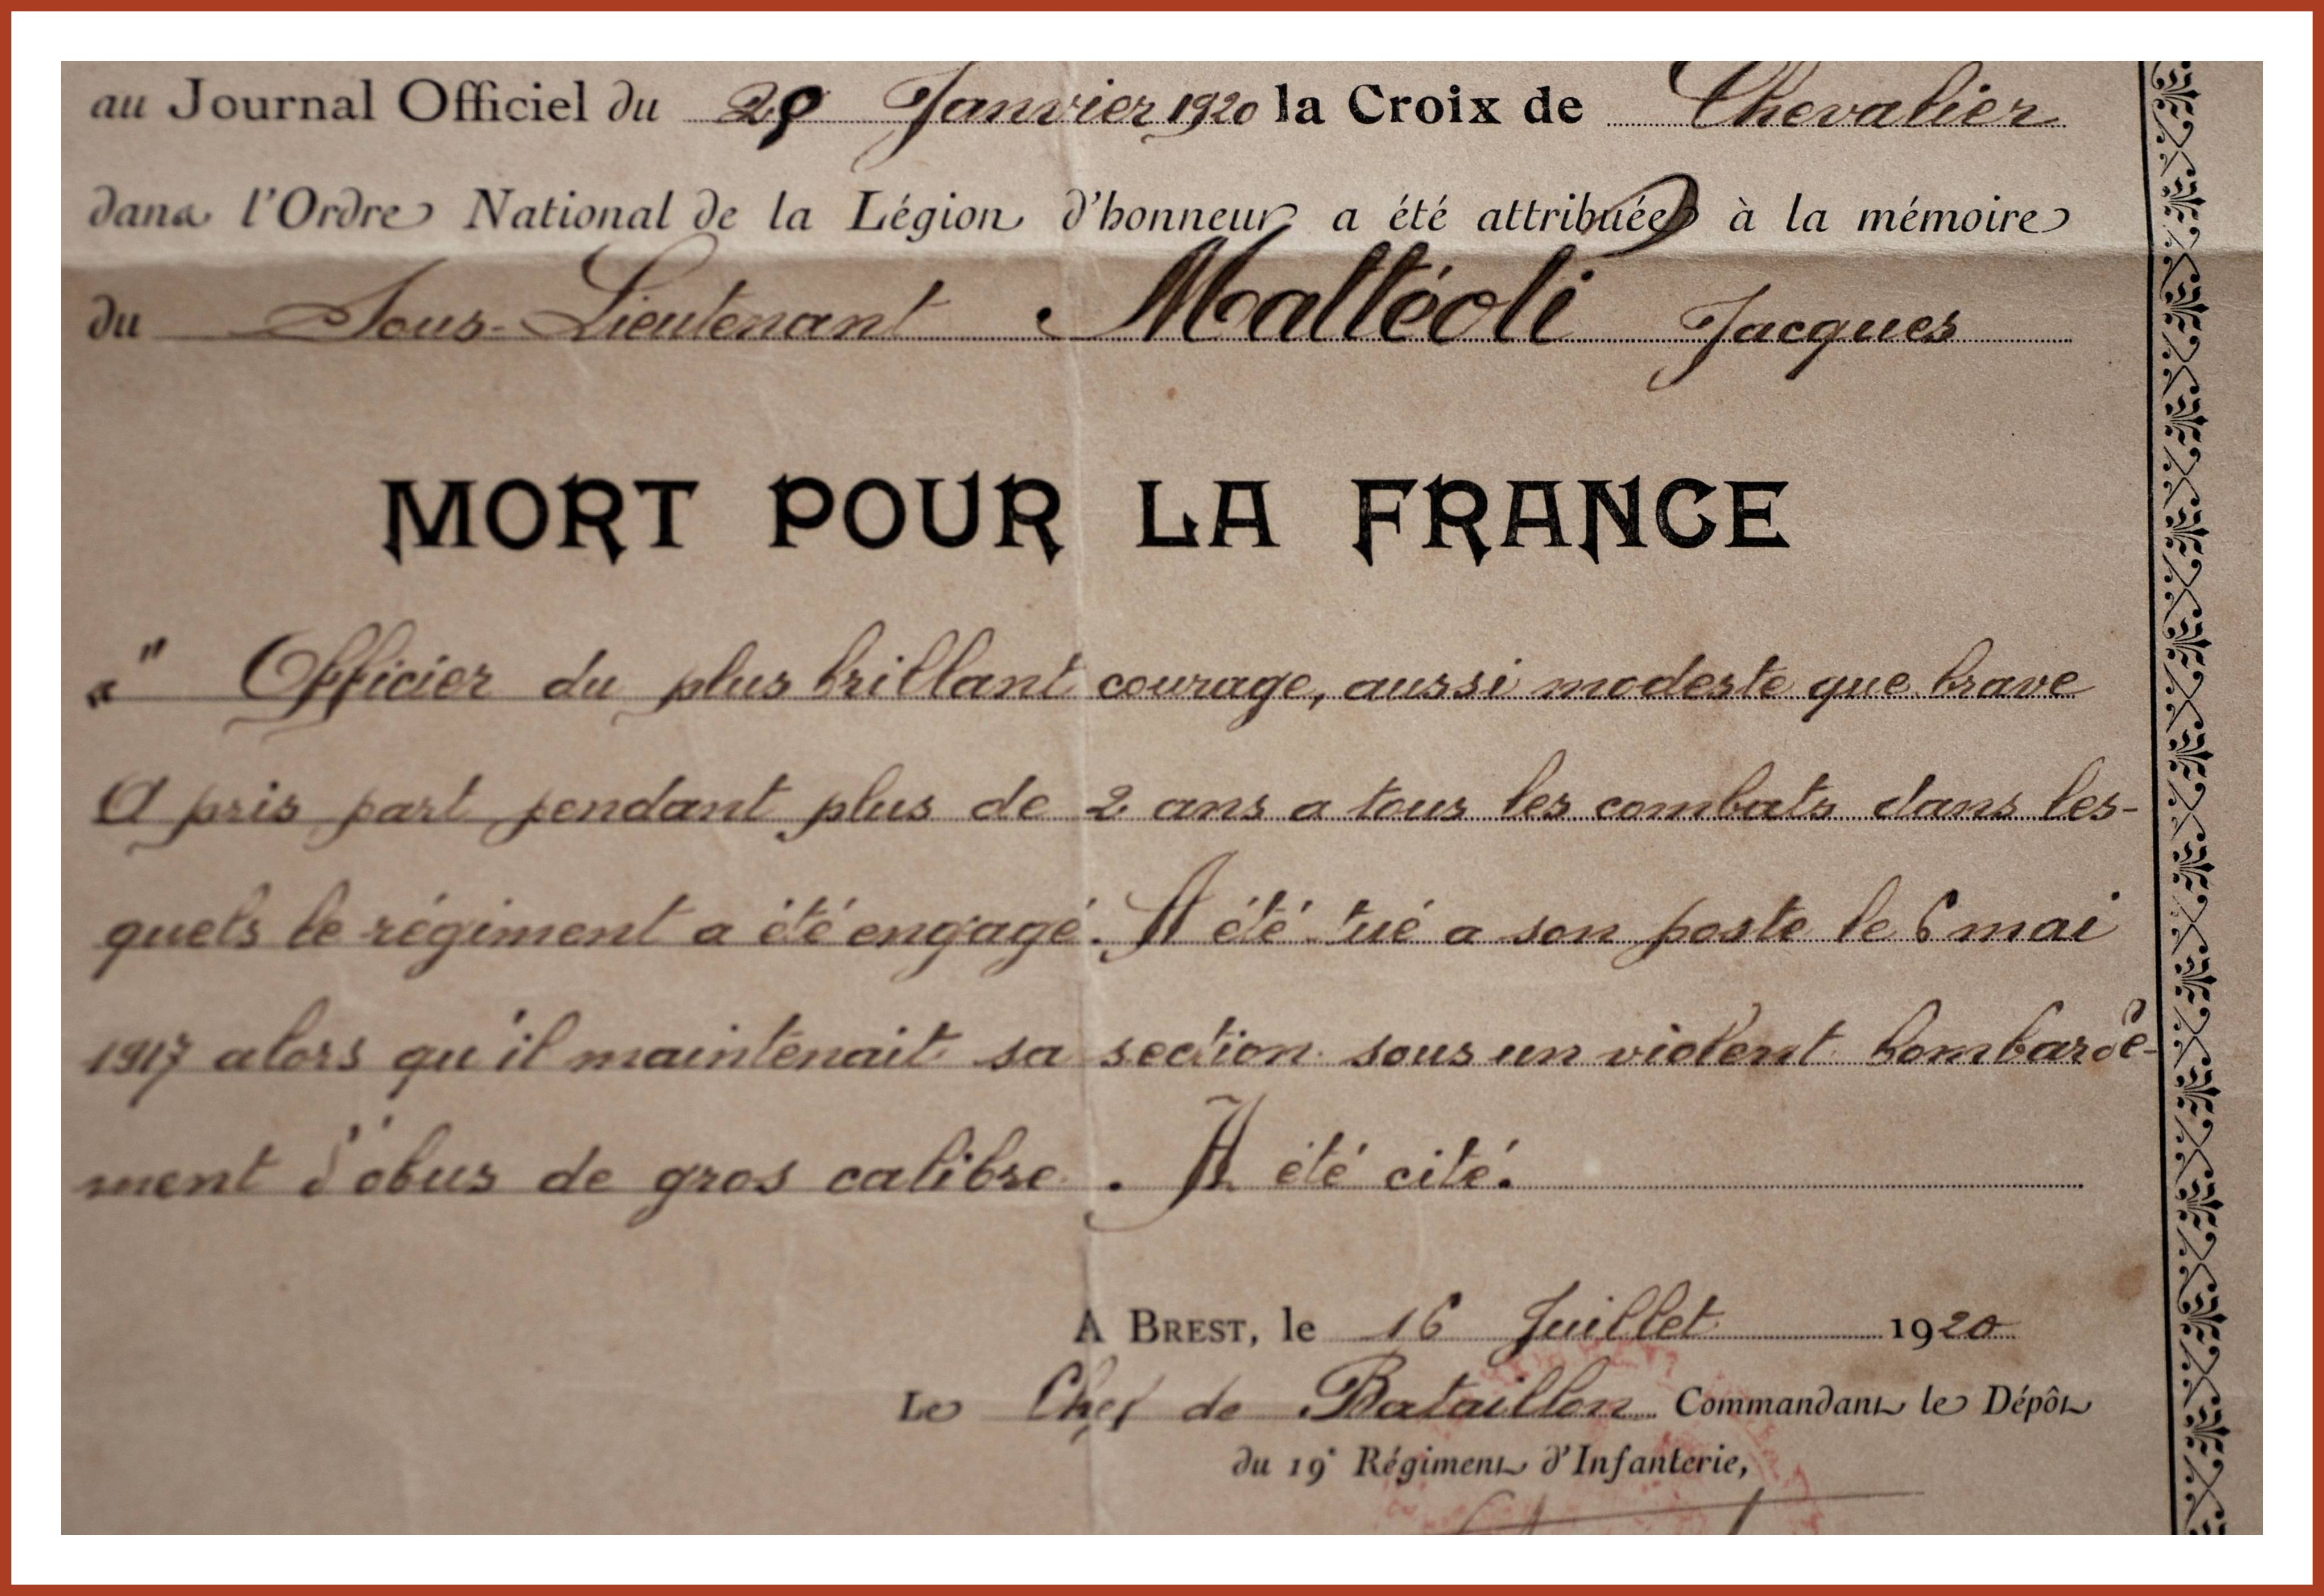 au Journal Officiel du 29 Janvier 1920 la Croix de Chevalier
dans l'Ordre National de la Légion d'honneur a été attribuée à la mémoire
du Sous-Lieutenant Mattéoli Jacques
MORT POUR LA FRANCE
" Officier du plus brillant courage, aussi modeste que brave
A pris part pendant plus de 2 ans a tous les combats dans les-
quels le régiment a été engagé. A été tué a son poste le 6 mai
1917 alors qu'il maintenait sa section sous un violent bombarde-
ment d'obus de gros calibre. A été cité.
A BREST, le 16 Juillet 1920
Le Chef de Bataillon Commandant le Dépôt
du 19e Régiment d'Infanterie,